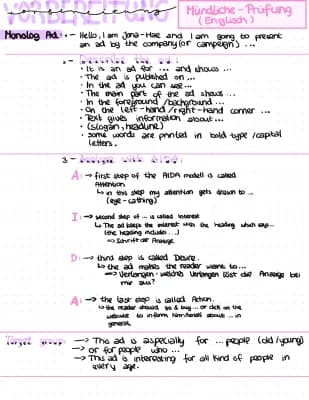 VORBEREITUNG
Mündliche-Prüfung
(Englisch)
Monolog Ad: 1 - Hello, I am Jona-Mae and I am going to present
an ad by the company (or campaign) ...
2 - Describe the ad:
• It is an ad for ... and shows ...
• The ad is published on ...
• In the ad you can see ...
• The main part of the ad shows ...
• In the foreground /background ...
• On the left-hand /right-hand corner ...
• Text gives information about ...
• (Slogan, headline)
• some words are printed in bold type /capital
letters.
3 - Analyse with AIDA:
A: → first step of the AIDA modell is called
Attention
↳ in this step my attention gets drawn to ...
(eye-cathing)
I: → second step of ... is called Interest
↳ The ad keeps the interest with the heading which says...
(the heading includes ...)
⇒ Schrift der Anzeige
D: → third step is called Desire.
↳ the ad makes the reader want to...
⇒ Verlangen - welches Verlangen löst die Anzeige bei
mir aus?
A: → the last step is called Action.
↳ the reader should go & buy ... or click on the
website to inform him/herself about ... in
general
Target group: → This ad is especially for ... people (old /young)
→ or for people who ...
→ This ad is interesting for all kind of people in
every age.